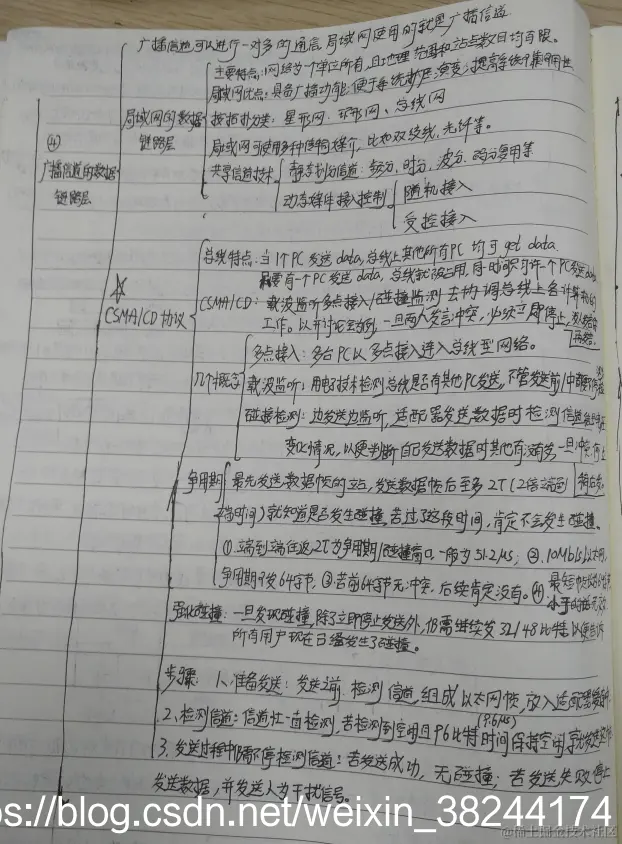 广播信道可以进行一对多的通信,局域网使用的就是广播信道
主要特点:网络为一个单位所有,且地理范围和站点数目均有限。
局域网优点:具备广播功能;便于系统扩展演变;提高系统可靠可用性
局域网的数据链路层
按拓扑分类:星形网、环形网、总线网
④
局域网可使用多种传输媒介,比如双绞线,光纤等。
广播信道的数据链路层
共享信道技术
静态划分信道:频分,时分,波分,码分复用等
动态媒体接入控制
随机接入
受控接入
总线特点:当1个PC发送data,总线上其他所有PC均可get data.
只要有一个PC发送data,总线就被占用,同一时间只允许一个PC发送data
☆
CSMA/CD协议
CSMA/CD:载波监听多点接入/碰撞监测去协调总线上各计算机的
工作。以开讨论会为例,一旦两人发言冲突,必须立即停止,
再发。
几个概念
多点接入:多台PC以多点接入进入总线型网络。
载波监听:用电子技术检测总线是否有其他PC发送,不管发送前/中
碰撞检测:边发送边监听,适配器发送数据时检测信道
变化情况,以便判断自己发送数据时其他有没有发,一旦冲突,
争用期
最先发送数据帧的站,发送数据帧后至多2T(2倍端到
端时间)就知道是否发生碰撞,若过了这段时间,肯定不会发生碰撞。
①.端到端往返2T为争用期/碰撞窗口,一般为51.2μs;②.10Mb/s以太网,
争用期可发64字节,③.若前64字节无冲突,后续肯定没有。④最短帧
小于
强化碰撞:一旦发现碰撞,除了立即停止发送外,仍需继续发32/48比特以便告诉
所有用户现在已经发生了碰撞。
步骤:1、准备发送:发送之前,检测信道,组成以太网帧,放入适配器缓存中
(9.6μs)
2、检测信道:信道忙一直检测,若检测到空闲且96比特时间保持空闲,就发送
3、发送过程中仍需不停检测信道:若发送成功,无碰撞;若发送失败,停止
发送数据,并发送人为干扰信号。
ps://blog.csdn.net/weixin_38244174
@稀土掘金技术社区